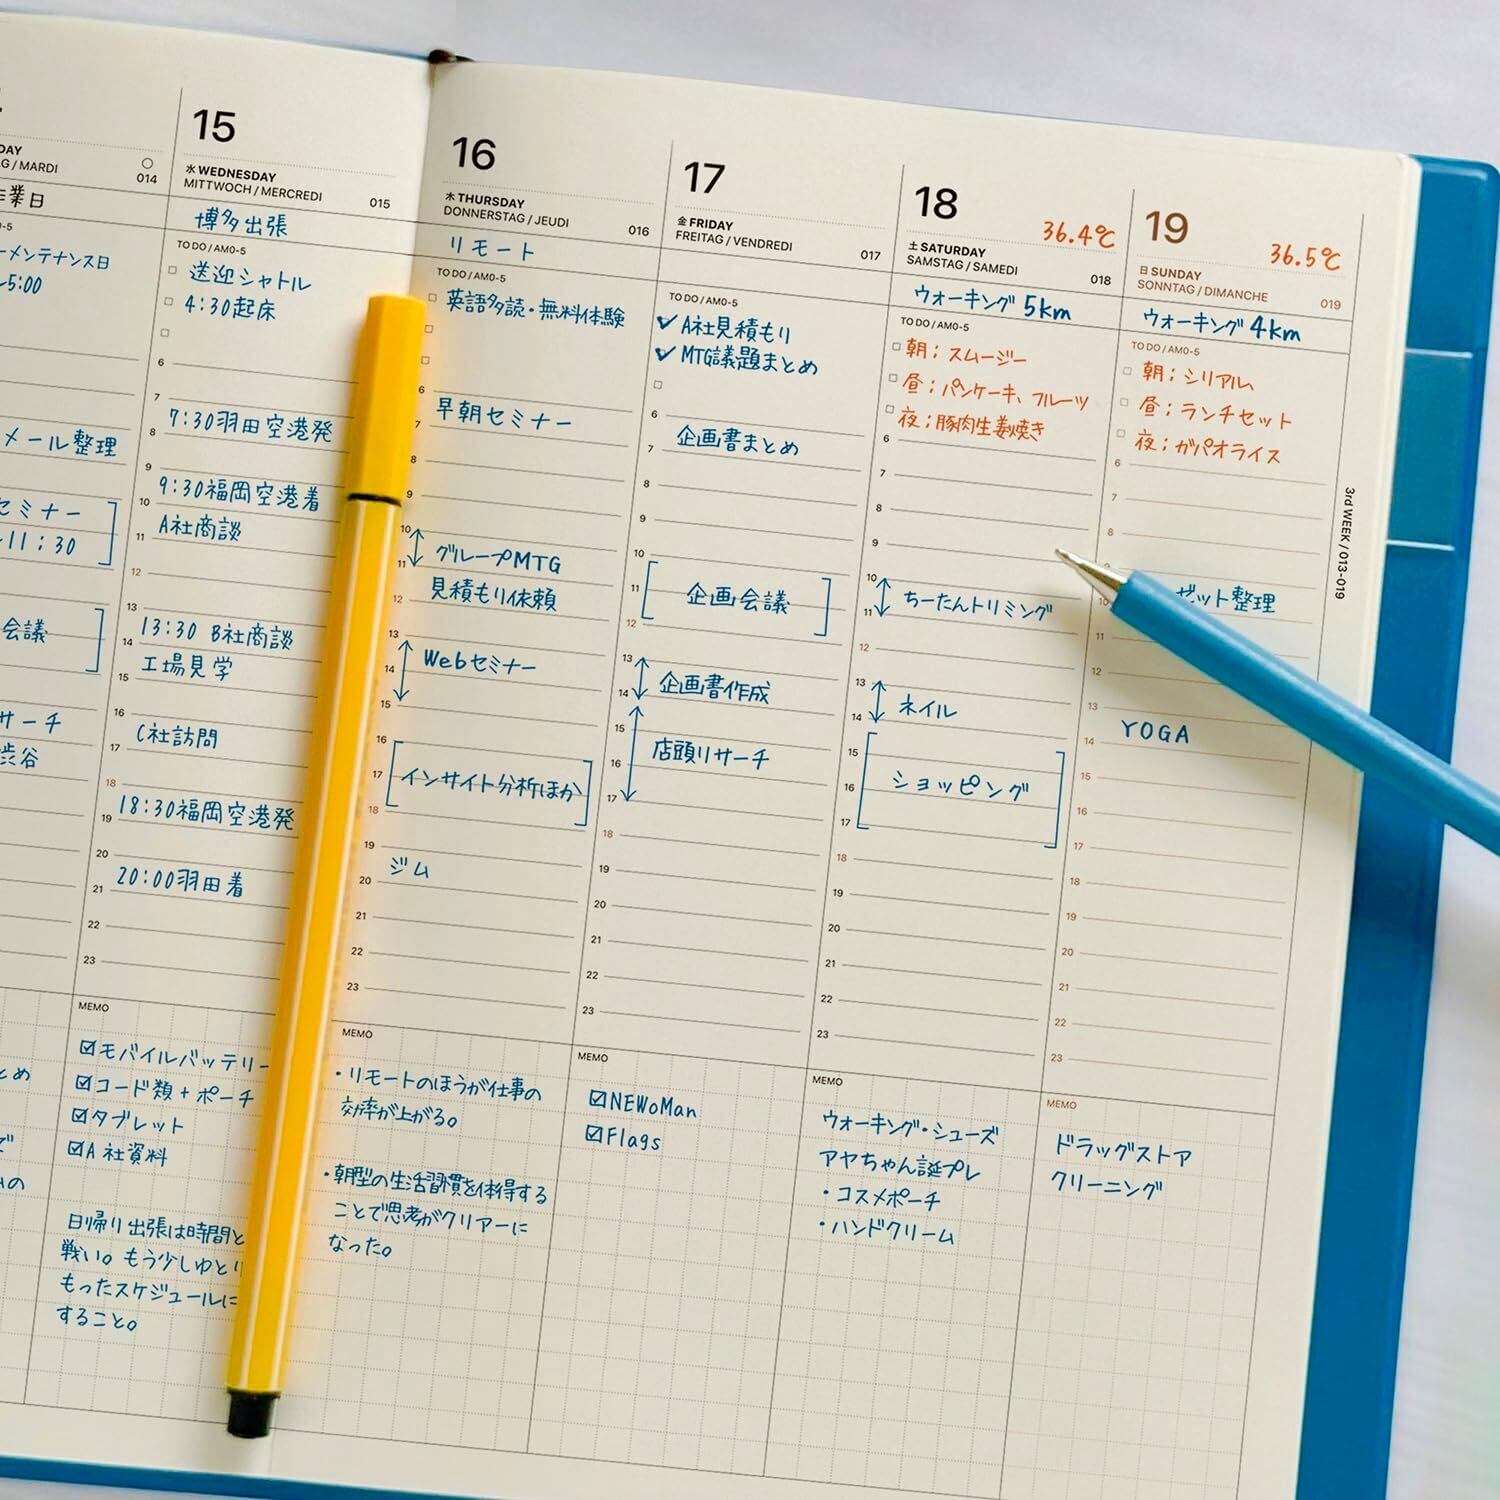 MARDI
014
業日
メンテナンス日
5:00
メール整理
セミナー
11:30
会議
サーチ
渋谷
15
水 WEDNESDAY
MITTWOCH / MERCREDI
015
博多出張
TO DO / AM0-5
送迎シャトル
4:30起床
6
7
7:30羽田空港発
8
9
9:30福岡空港着
10
A社商談
11
12
13
13:30 B社商談
14
工場見学
15
16
C社訪問
17
18
18:30福岡空港発
19
20
20:00羽田着
21
22
23
MEMO
☑モバイルバッテリー
☑コード類+ポーチ
☑タブレット
☑A社資料
日帰り出張は時間と
戦い。もう少しゆとり
もったスケジュールに
すること。
16
木 THURSDAY
DONNERSTAG / JEUDI
016
リモート
TO DO / AM0-5
英語多読・無料体験
6
早朝セミナー
7
8
9
10
グループMTG
11
見積もり依頼
12
13
Webセミナー
14
15
16
インサイト分析ほか
17
18
19
ジム
20
21
22
23
MEMO
・リモートのほうが仕事の
効率が上がる。
・朝型の生活習慣を体得する
ことで思考がクリアーに
なった。
17
金 FRIDAY
FREITAG / VENDREDI
017
TO DO / AM0-5
✓A社見積もり
✓MTG議題まとめ
6
企画書まとめ
7
8
9
10
企画会議
11
12
13
企画書作成
14
15
店頭リサーチ
16
17
18
19
20
21
22
23
MEMO
☑NEWoMan
☑Flags
18
36.4℃
土 SATURDAY
SAMSTAG / SAMEDI
018
ウォーキング 5km
TO DO / AM0-5
朝；スムージー
昼；パンケーキ、フルーツ
夜；豚肉生姜焼き
6
7
8
9
10
ちーたんトリミング
11
12
13
ネイル
14
15
ショッピング
16
17
18
19
20
21
22
23
MEMO
ウォーキング・シューズ
アヤちゃん誕プレ
・コスメポーチ
・ハンドクリーム
19
36.5℃
日 SUNDAY
SONNTAG / DIMANCHE
019
ウォーキング 4km
TO DO / AM0-5
朝；シリアル
昼；ランチセット
夜；ガパオライス
6
7
8
10
ゼット整理
11
12
13
YOGA
14
15
16
17
18
19
20
21
22
23
MEMO
ドラッグストア
クリーニング
3rd WEEK / 013-019